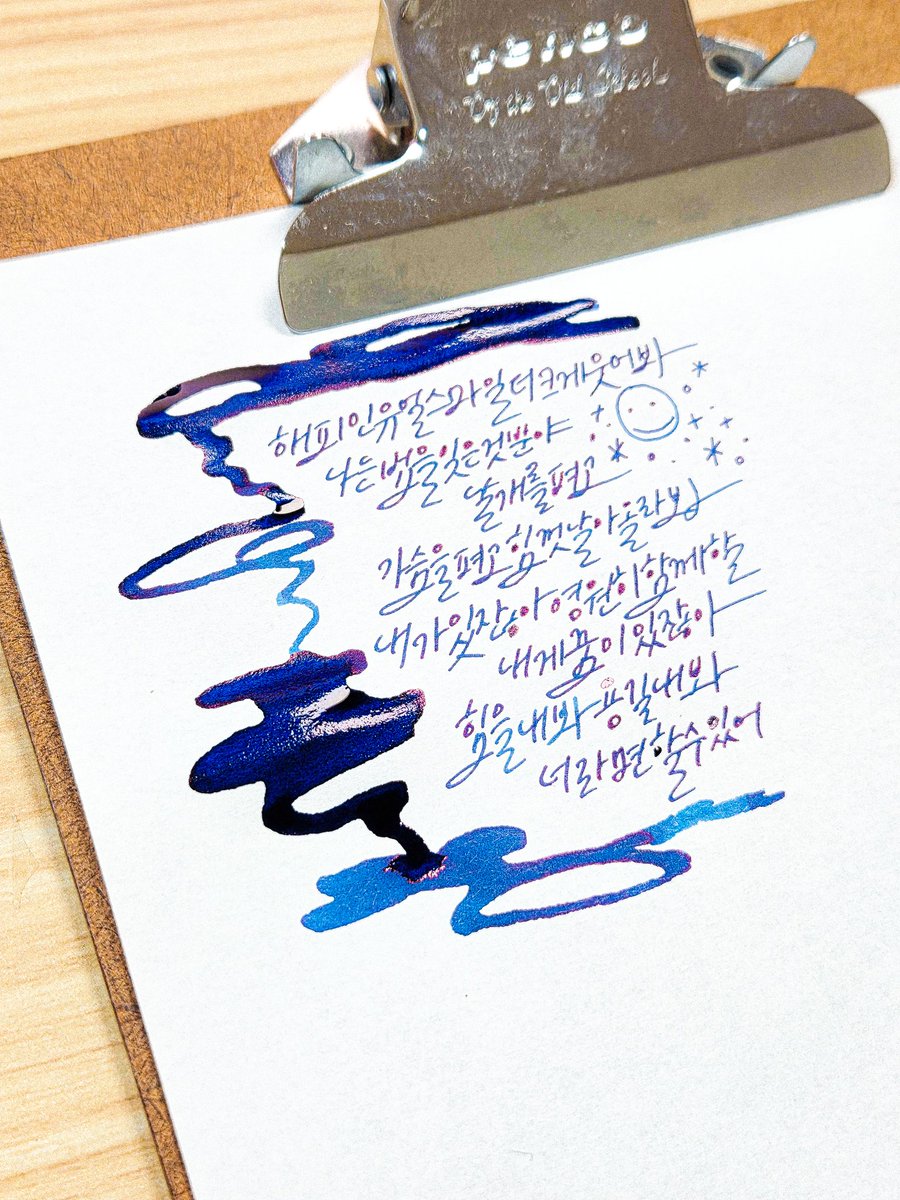 PENCO
By the Old School
해피인유얼스마일더크게웃어봐
나는법을잊은것뿐야
날개를펴고
가슴을펴고힘껏날아올라봐
내가있잖아영원히함께할
내게꿈이있잖아
힘을내봐용길내봐
너라면할수있어